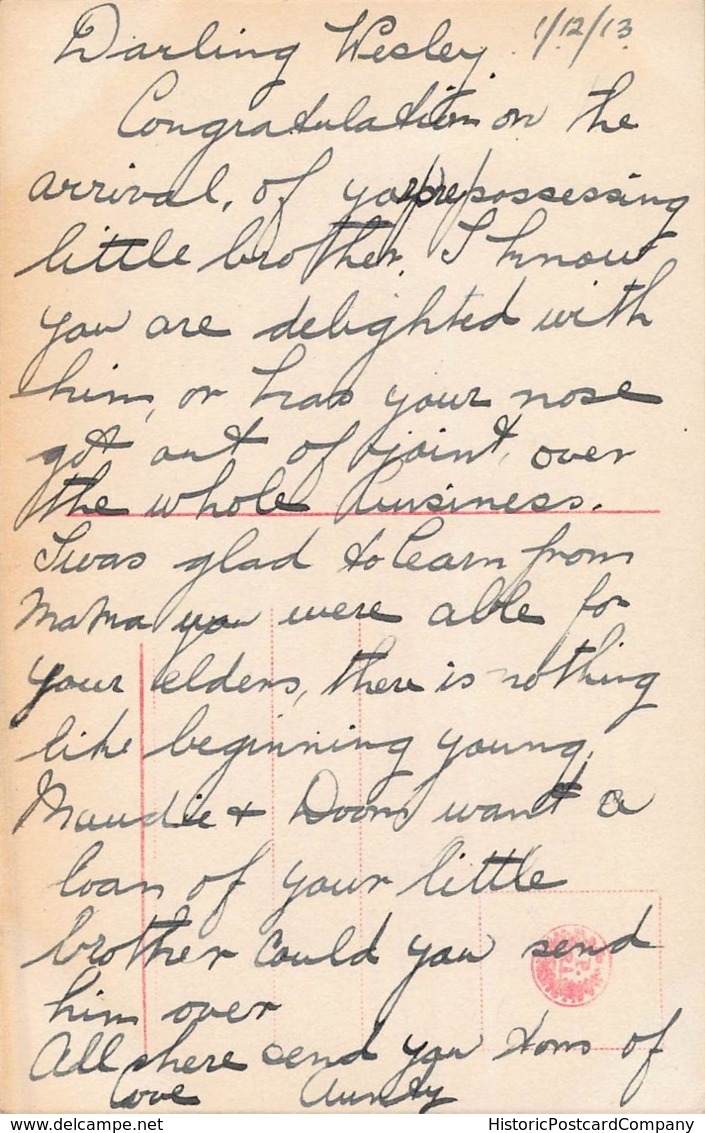 Darling Wesley. 1/12/13
Congratulation on the
arrival, of your prepossessing
little brother. I know
you are delighted with
him, or has your nose
got out of joint, over
the whole business.
I was glad to learn from
MaMa you were able for
your elders, there is nothing
like beginning young.
Maudie + want a
loan of your little
brother could you send
him over
All here send you tons of
Love Aunty
www.delcampe.net HistoricPostcardCompany